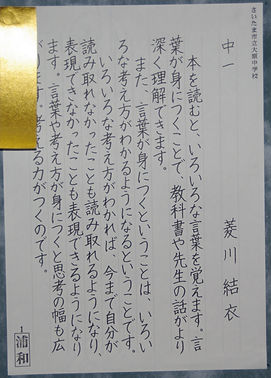 さいたま市立大原中学校
中一　菱川結衣
本を読むと、いろいろな言葉を覚えます。言
葉が身につくことで、教科書や先生の話がより
深く理解できます。
また、言葉が身につくということは、いろい
ろな考え方がわかるようになるということです。
いろいろな考え方がわかれば、今まで自分が
読み取れなかったことも読み取れるようになり、
表現できなかったことも表現できるようになり
ます。言葉や考え方が身につくと思考の幅も広
がります。考える力がつくのです。
浦和